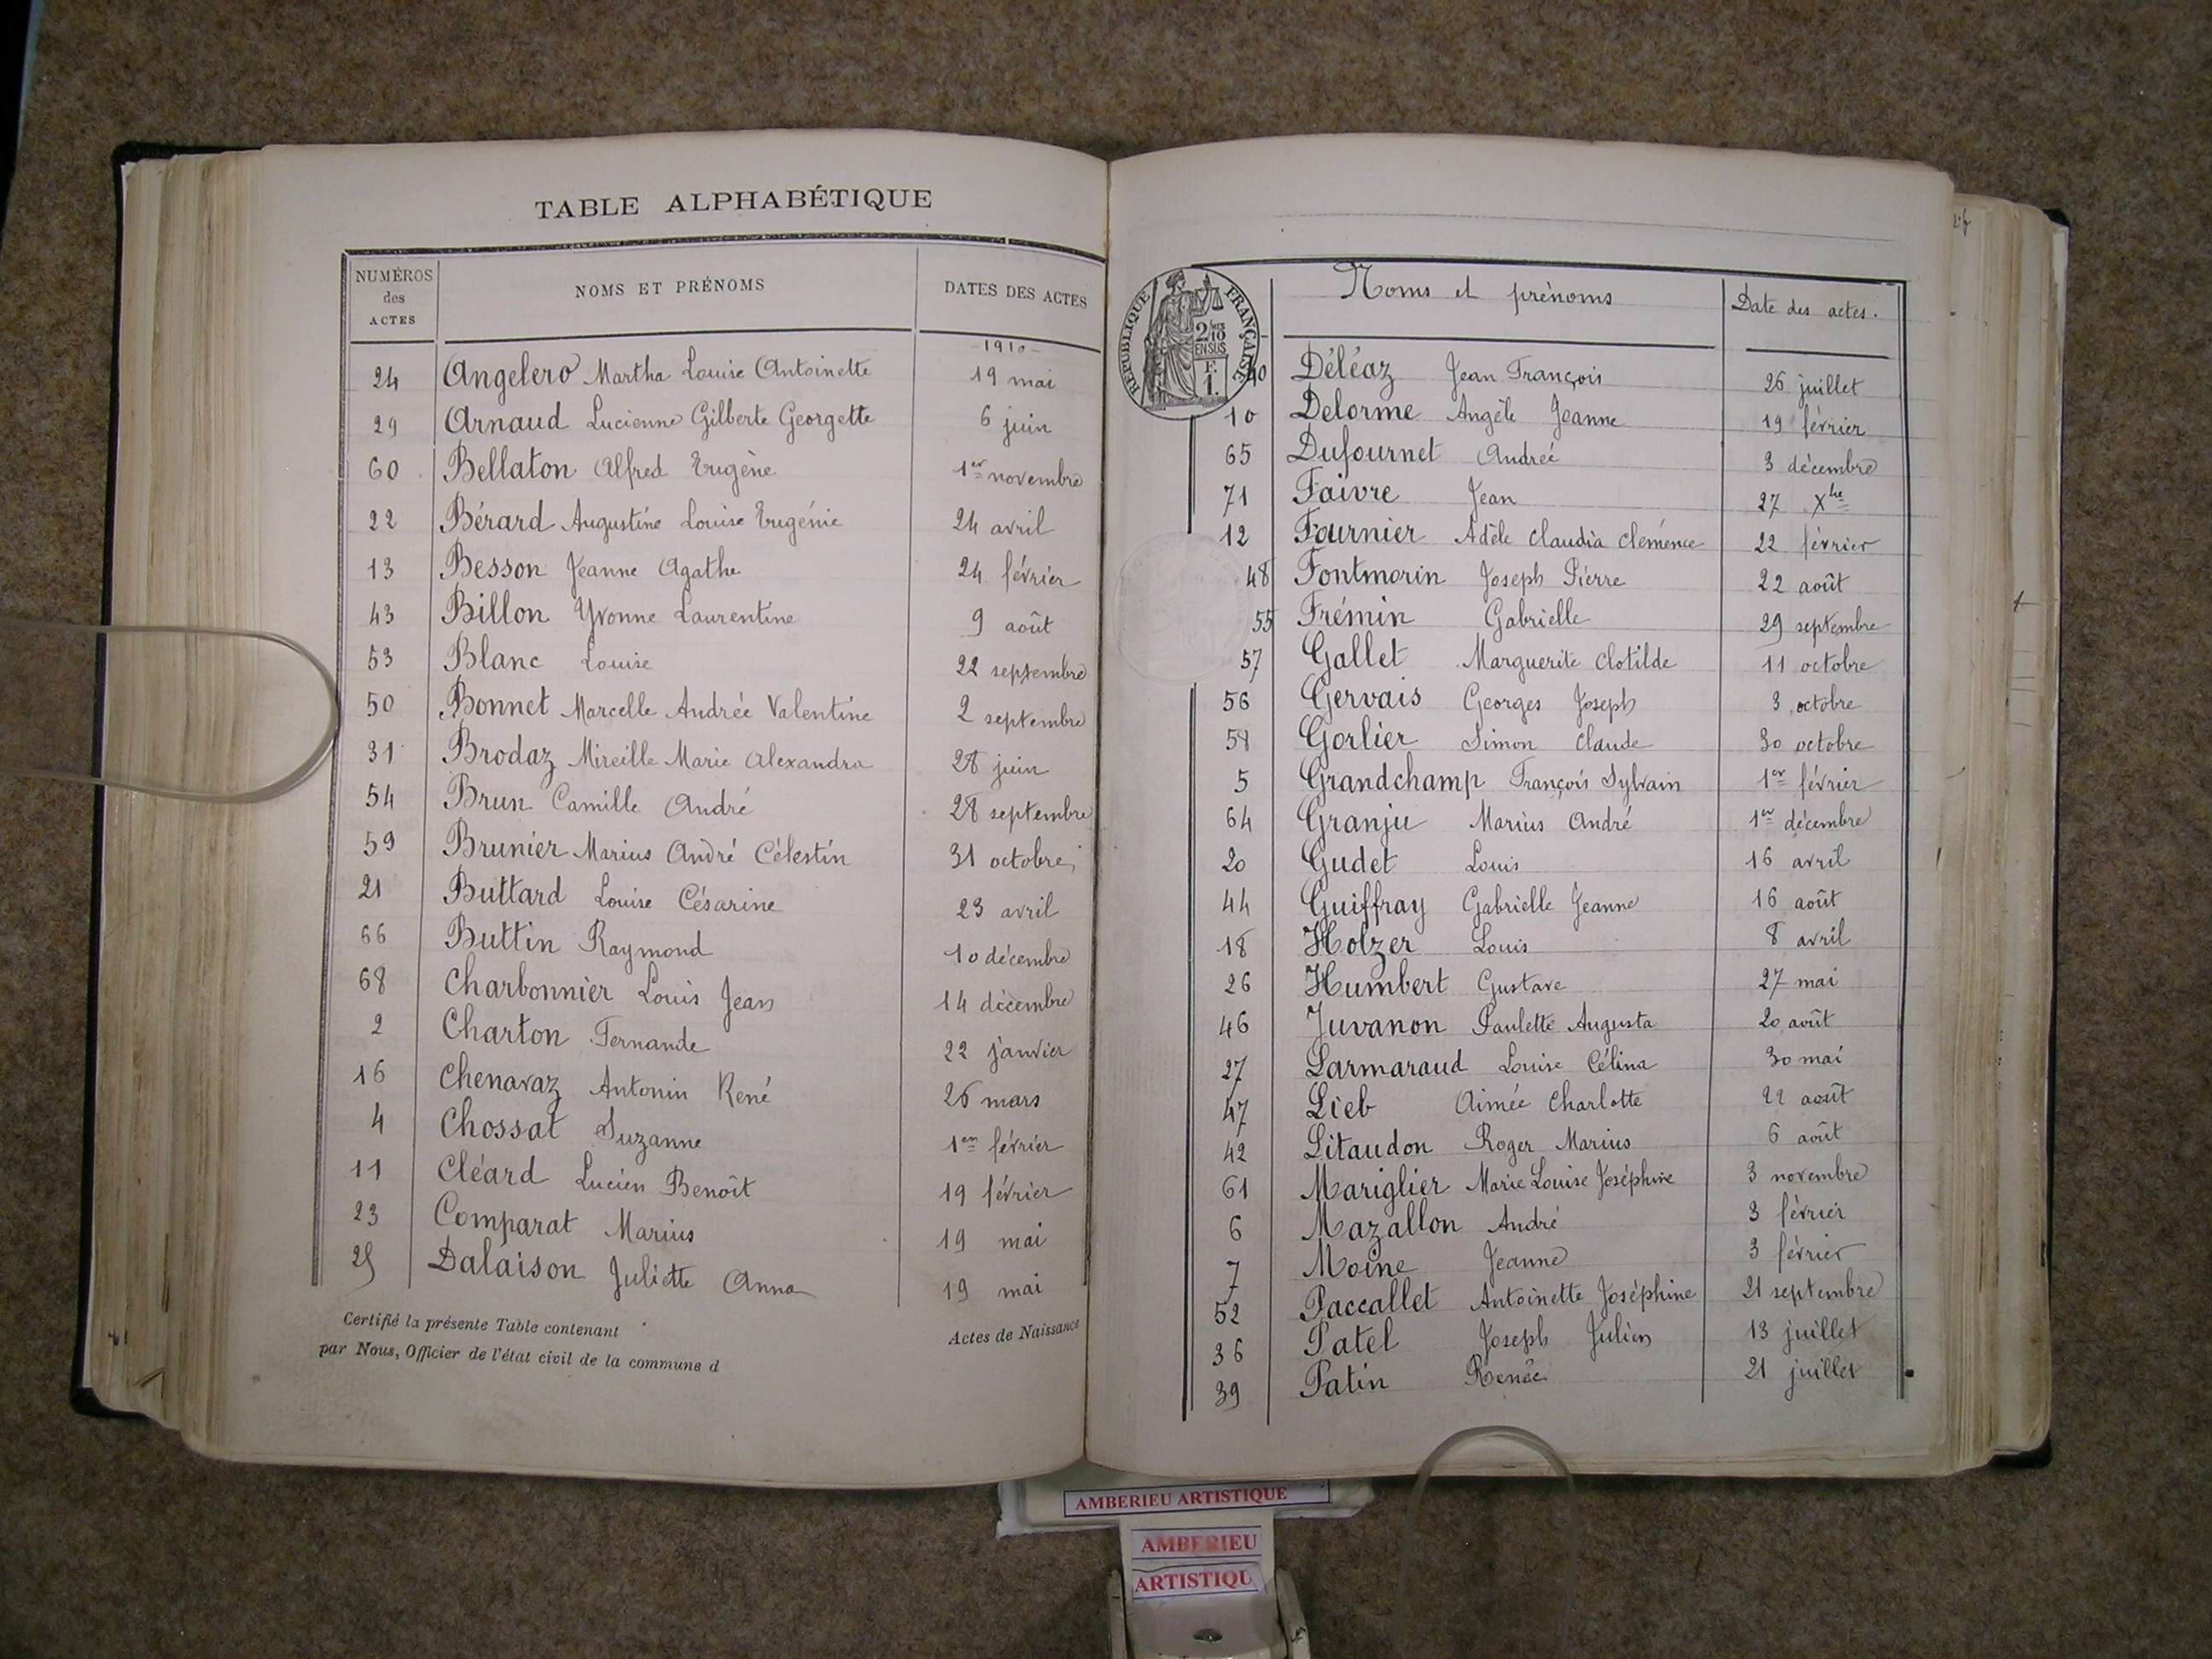 TABLE ALPHABÉTIQUE
NUMÉROS des ACTES NOMS ET PRÉNOMS DATES DES ACTES
1910
24 Angelero Martha Louise Antoinette 19 mai
29 Arnaud Lucienne Gilberte Georgette 6 juin
60 Bellaton Alfred Eugène 1er novembre
22 Bérard Augustine Louise Eugénie 24 avril
13 Besson Jeanne Agathe 24 février
43 Billon Yvonne Laurentine 9 août
53 Blanc Louise 22 septembre
50 Bonnet Marcelle Andrée Valentine 2 septembre
31 Brodaz Mireille Marie Alexandra 28 juin
54 Brun Camille André 28 septembre
59 Brunier Marius André Célestin 31 octobre
21 Buttard Louise Césarine 23 avril
66 Buttin Raymond 10 décembre
68 Charbonnier Louis Jean 14 décembre
2 Charton Fernande 22 janvier
16 Chenavaz Antonin René 26 mars
4 Chossat Suzanne 1er février
11 Cléard Lucien Benoît 19 février
23 Comparat Marius 19 mai
25 Dalaison Juliette Anna 19 mai
Certifié la présente Table contenant Actes de Naissance
par Nous, Officier de l'état civil de la commune d
RÉPUBLIQUE FRANÇAISE
2/10 EN SUS
F. 1.
Noms et prénoms Date des actes.
40 Déléaz Jean François 26 juillet
10 Delorme Angèle Jeanne 19 février
65 Dufournet Andrée 3 décembre
71 Faivre Jean 27 Xbre
12 Fournier Adèle Claudia Clémence 22 février
48 Fontmorin Joseph Pierre 22 août
55 Frémin Gabrielle 29 septembre
57 Gallet Marguerite Clotilde 11 octobre
56 Gervais Georges Joseph 3 octobre
58 Gorlier Simon Claude 30 octobre
5 Grandchamp François Sylvain 1er février
64 Granju Marius André 1er décembre
20 Gudet Louis 16 avril
44 Guiffray Gabrielle Jeanne 16 août
18 Holzer Louis 8 avril
26 Humbert Gustave 27 mai
46 Juvanon Paulette Augusta 20 août
27 Larmaraud Louise Célina 30 mai
47 Lieb Aimée Charlotte 22 août
42 Litaudon Roger Marius 6 août
61 Mariglier Marie Louise Joséphine 3 novembre
6 Mazallon André 3 février
7 Moine Jeanne 3 février
52 Paccallet Antoinette Joséphine 21 septembre
36 Patel Joseph Julien 13 juillet
39 Patin Renée 21 juillet
AMBERIEU ARTISTIQUE
AMBERIEU
ARTISTIQU